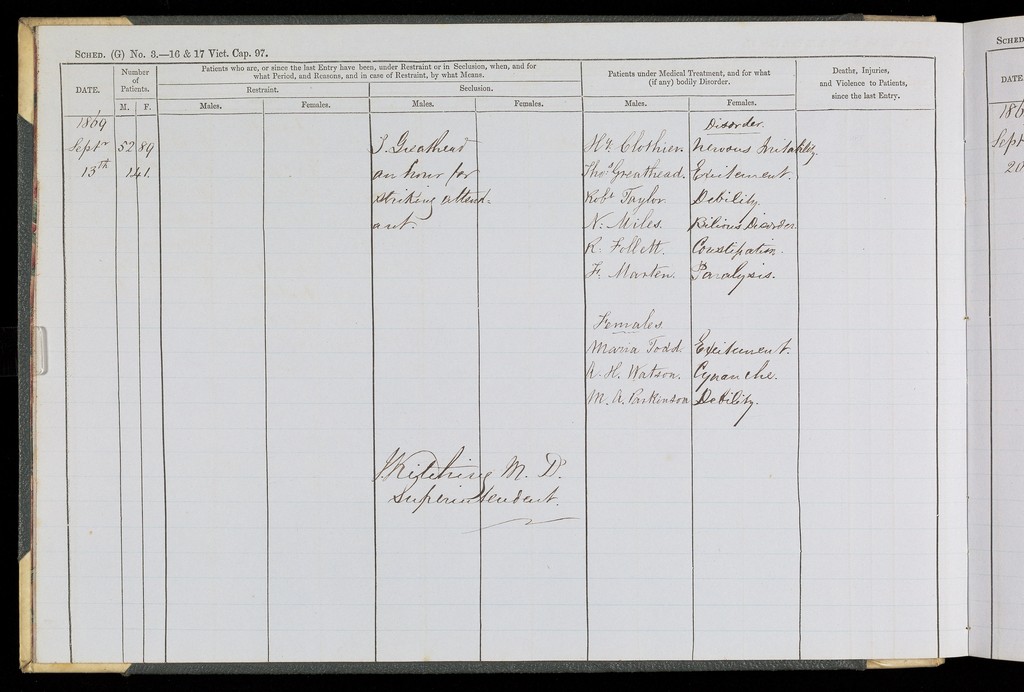 SCHED. (G) No. 3.—16 & 17 Vict. Cap. 97.
DATE.
Number of Patients.
M. F.
Patients who are, or since the last Entry have been, under Restraint or in Seclusion, when, and for
what Period, and Reasons, and in case of Restraint, by what Means.
Restraint.
Seclusion.
Males. Females. Males. Females.
Patients under Medical Treatment, and for what
(if any) bodily Disorder.
Males. Females.
Deaths, Injuries,
and Violence to Patients,
since the last Entry.
1869 Disorder.
Septr 52 89 T. Greathead Hy. Clothier. Nervous Irritability.
13th 141. an hour for Thos Greathead. Excitement.
striking attend- Robt Taylor Debility.
ant. N. Miles. Bilious Disorder
R. Follett. Constipation.
F. Marten. Paralysis.
Females
Maria Todd. Excitement.
A. H. Watson. Cynanche.
M. A. Parkinson Debility.
J Kitching M. D.
Superintendent.
SCHED
DATE
186
Sept
20